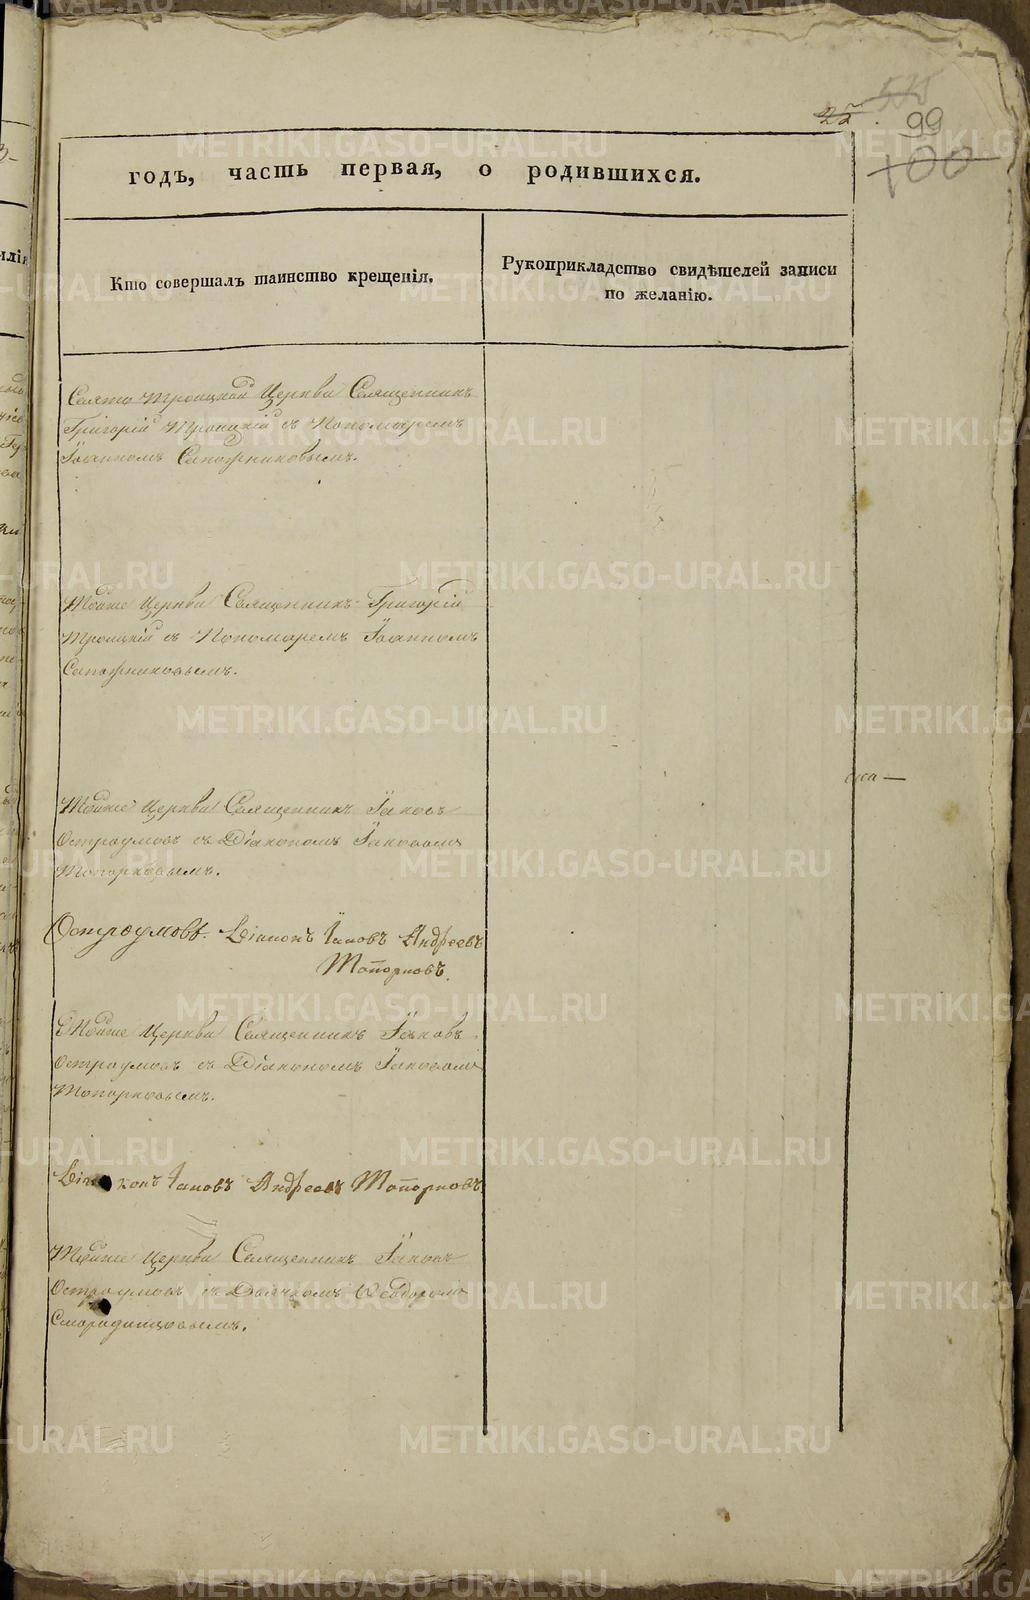 22
515
99
100
годъ, часть первая, о родившихся.
Кто совершалъ таинство крещенія.
Рукоприкладство свидѣтелей записи
по желанію.
Свято Троицкой Церкви Священникъ
Григорій Троицкій съ Пономаремъ
Іоанномъ Сапожниковымъ.
Тойже Церкви Священникъ Григорій
Троицкій съ Пономаремъ Іоанномъ
Сапожниковымъ.
Тойже Церкви Священникъ Іаковъ
Остроумовъ съ Діакономъ Іаковомъ
Топорковымъ.
Остроумовъ. Діаконъ Іаковъ Андреевъ
Топорковъ.
Тойже Церкви Священникъ Іаковъ
Остроумовъ съ Діакономъ Іаковомъ
Топорковымъ.
Діаконъ Іаковъ Андреевъ Топорковъ
Тойже Церкви Священникъ Іаковъ
Остроумовъ съ Дьячкомъ Ѳеодоромъ
Смородинцовымъ.
METRIKI.GASO-URAL.RU